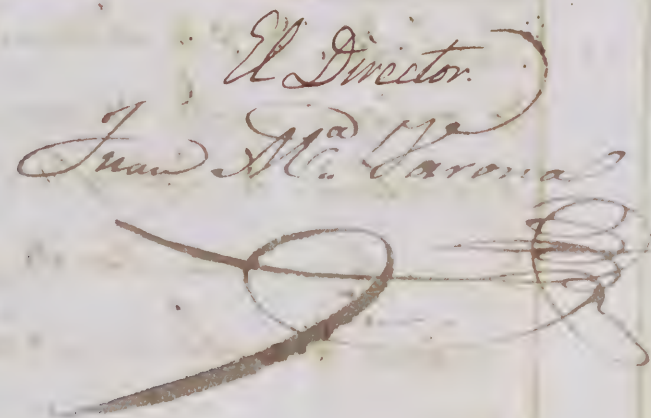 El Director.
Juan Mª Varona